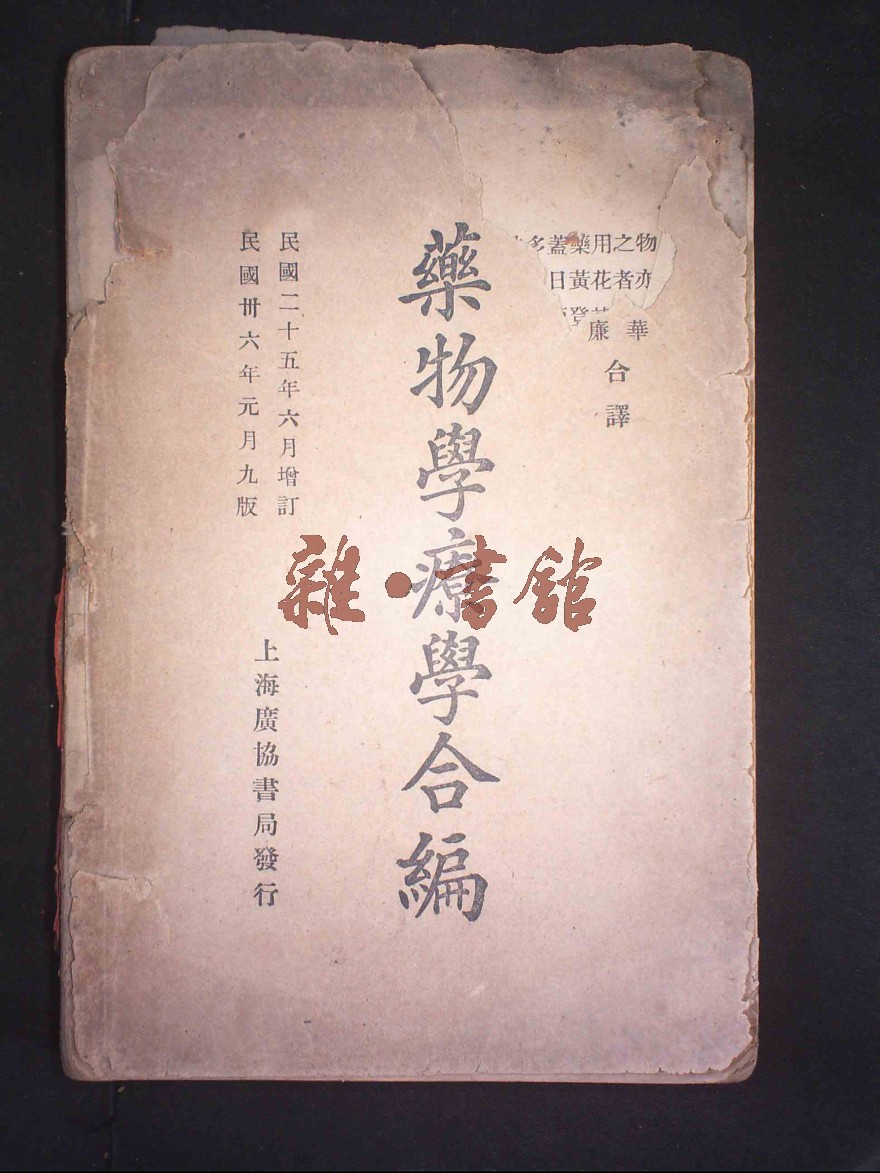 物之用藥蓋多
亦者花黃日
華
廉
合譯
藥物學療學合編
民國二十五年六月增訂
民國卅六年元月九版
上海廣協書局發行
雜·書館